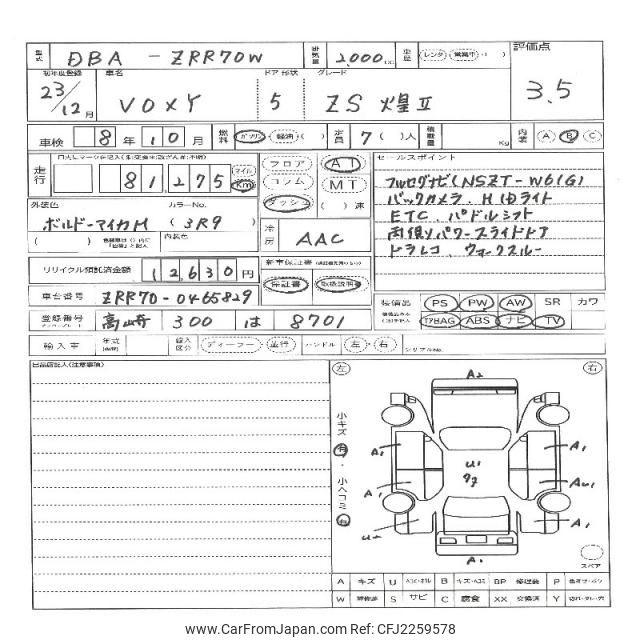 型式 DBA - ZRR70W 排気量 2,000 cc 車歴 レンタ 営業中 評価点
初年度登録 車名 ドア 形状 グレード
23/12月 VOXY 5 ZS 煌Ⅱ 3.5
車検 8年10月 燃料 ガソリン・軽油・( ) 定員 7( )人 積載量 Kg 内装 A B C
走行 81,275 マイル Km
フロア コラム ダッシュ
AT MT ( )速
セールスポイント
フルセグナビ(NSZT-W61G)
バックカメラ、HIDライト
ETC、パドルシフト
両側パワースライドドア
ドラレコ、ウォークスルー
外装色 カラーNo.
ボルドーマイカM (3R9)
( ) 内装色
冷房 AAC
リサイクル預託済金額 12630円
新車保証書 保証書 取扱説明書
車台番号 ZRR70-0465829
装備品 PS PW AW SR カワ
ABAG ABS ナビ TV
登録番号 300 は 8701
輸入車 年式 輸入区分 ディーラー・並行 ハンドル 左・右 シリアルNo.
出品店記入(注意事項)
左 右
小キズ 有・小ヘコミ 有
A2
A1 U1 A1
A1 AU1
U2 A1
A1
スペア
A キズ U B キズ・ヘコミ BP 修理跡 P
W S サビ C 腐食 XX 交換済 Y
www.CarFromJapan.com - CFJ2259578